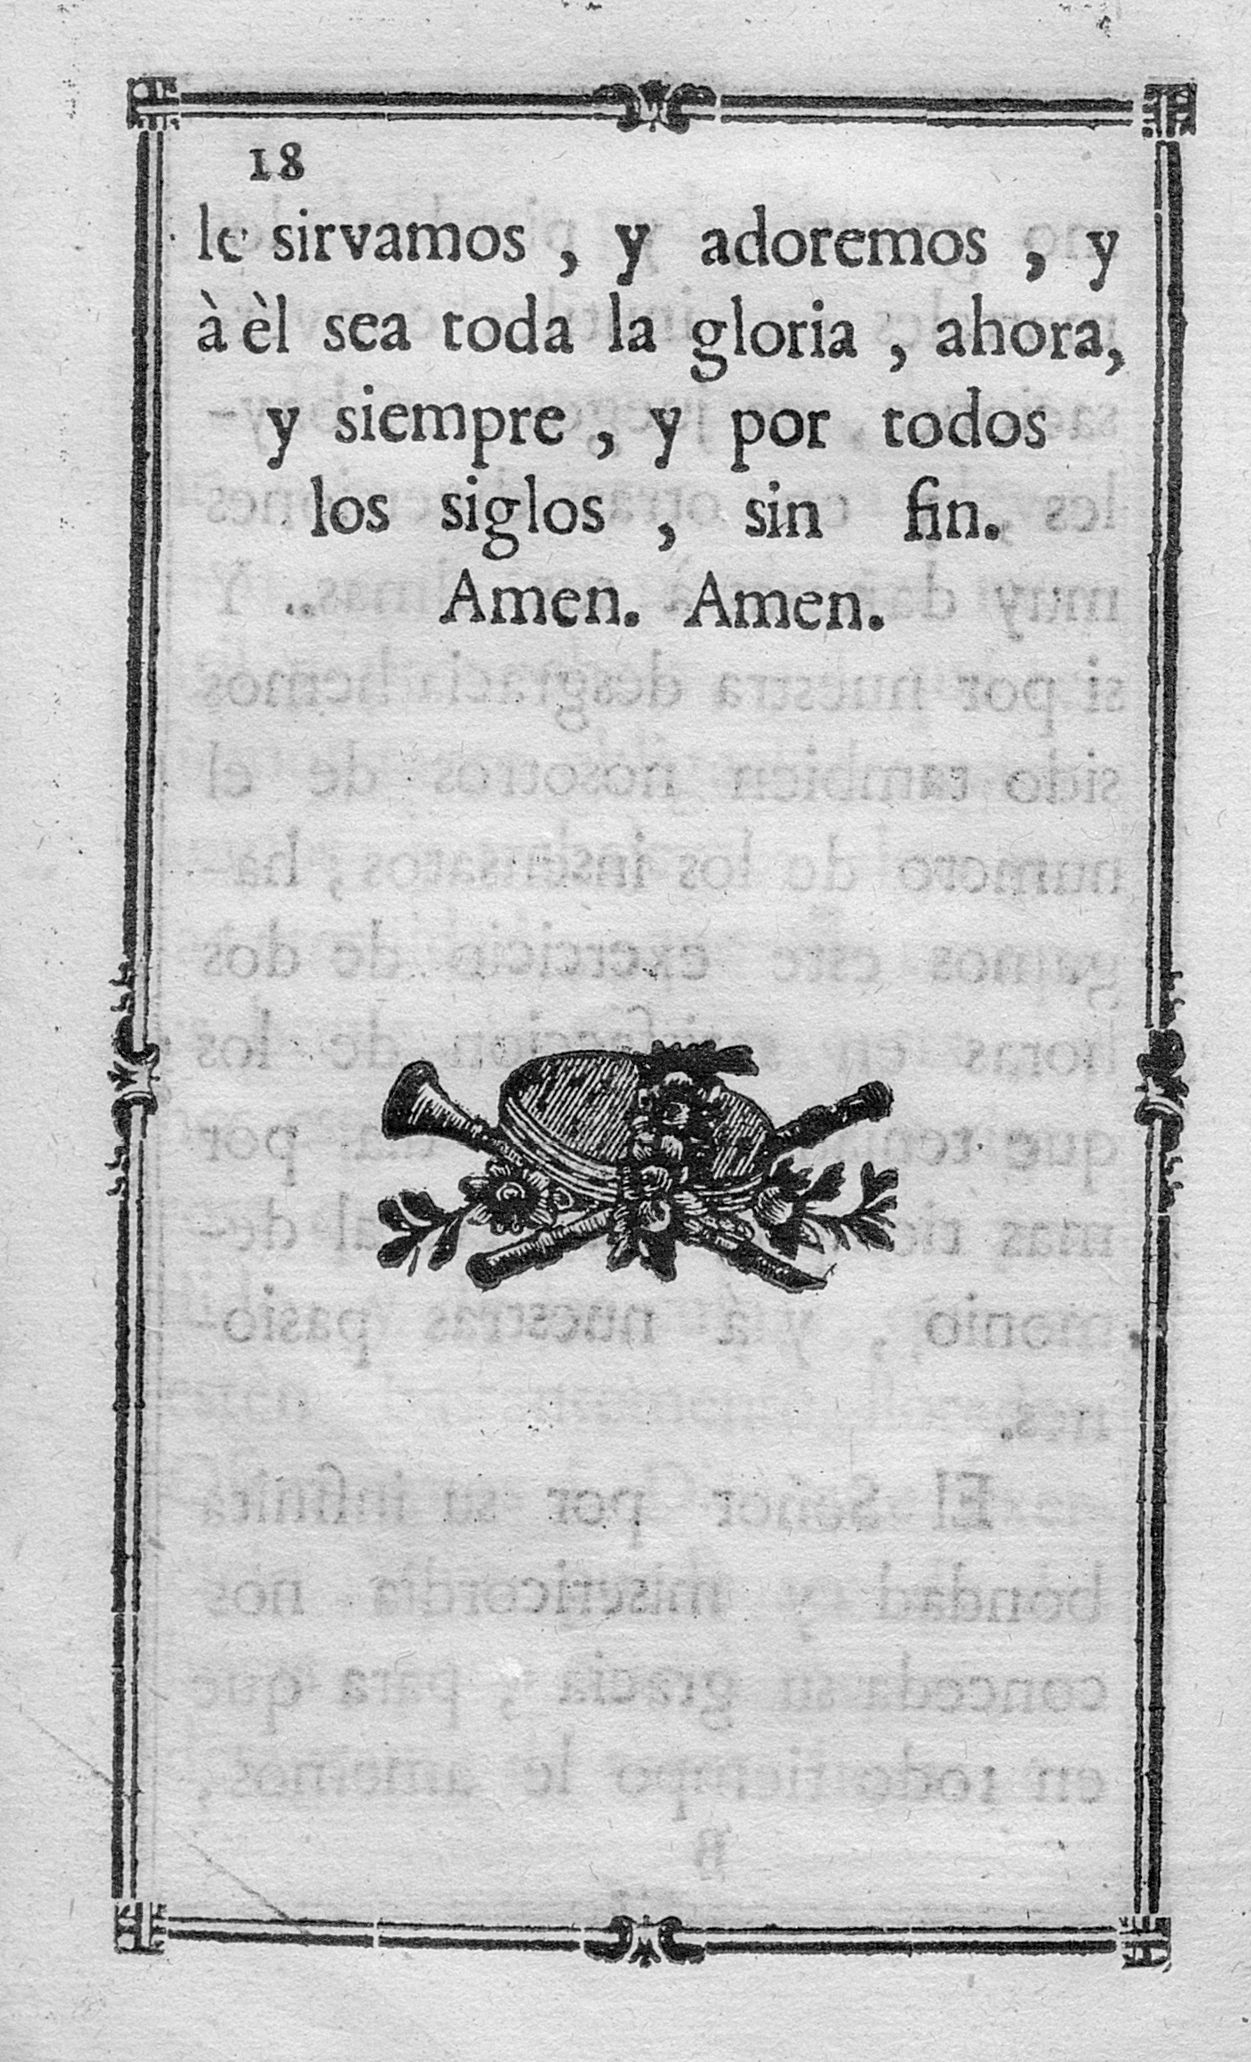 18
le sirvamos , y adoremos , y
à èl sea toda la gloria , ahora,
y siempre , y por todos
los siglos , sin fin.
Amen. Amen.